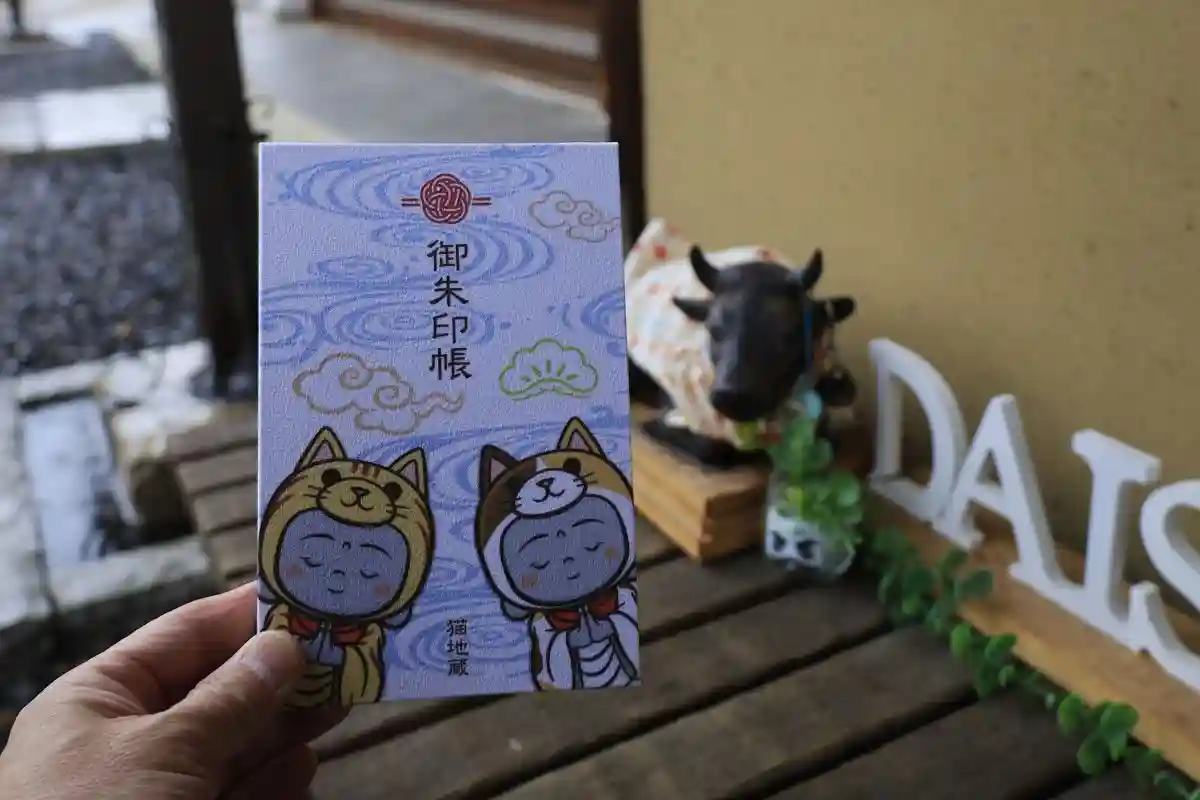 御朱印帳
猫地蔵
DAIS